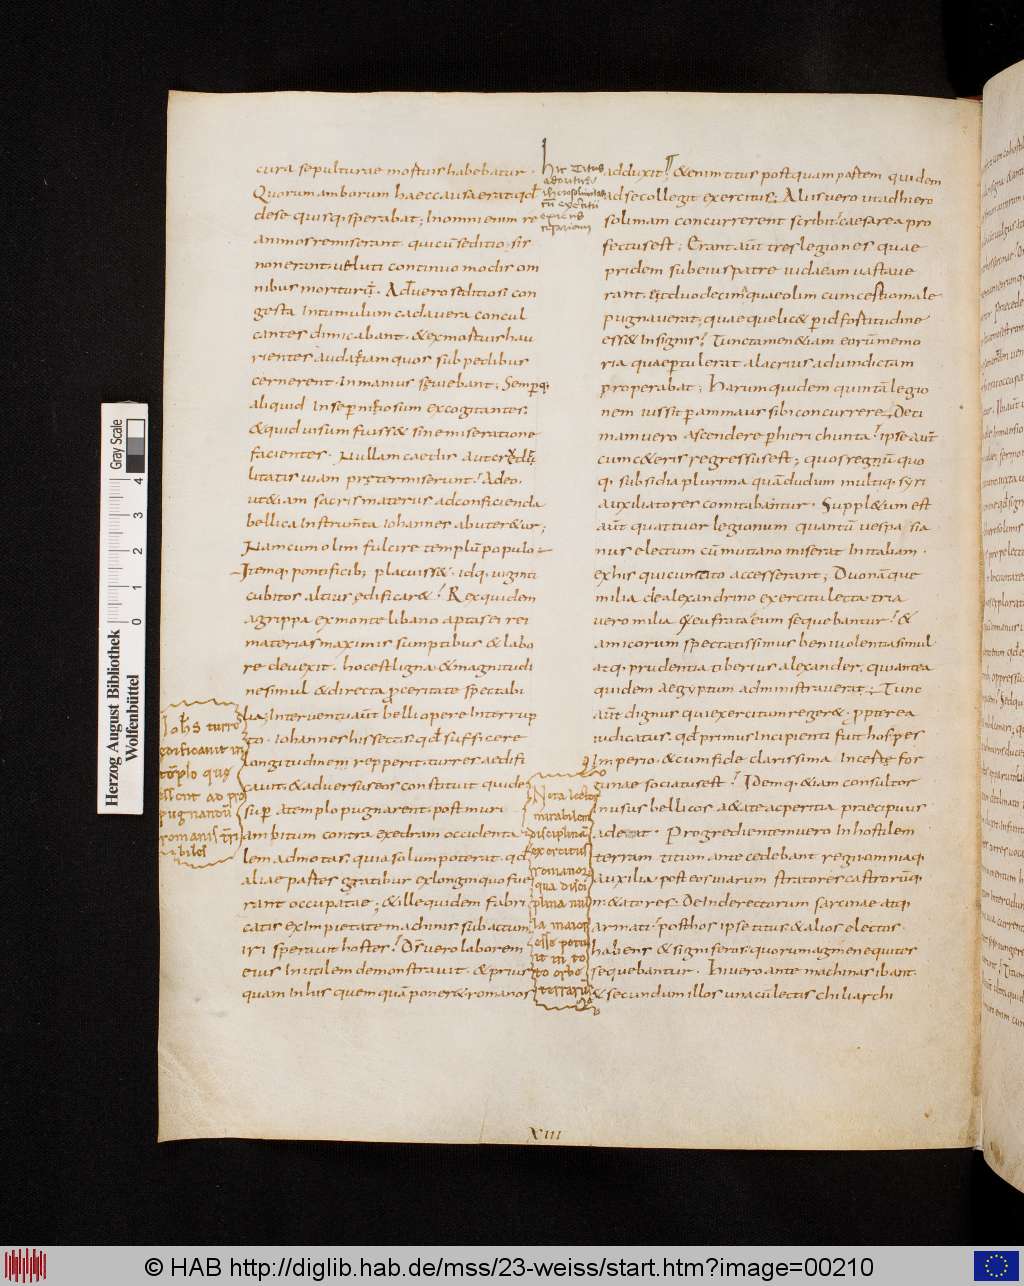 cura sepulturae mortuis habebatur.
Quorum amborum haec causa erat. qđ
de se quisq. sperabat; In omni enim re
animos remiserant. quicū seditio; sis
non erant. uel uti continuo modis om
nibus morituri. Ad uero seditiosi con
gesta In tumulum cadauera concul
cantes dimicabant. & ex mortuis hau
rientes audatiam quos sub pedibus
cernerent. In manius seuiebant; Semp q.
aliquid In se perniciosum excogitantes.
& quid uisum fuiss& sine miseratione
facientes. Nullam caedis aut crudeli
litatis uiam praetermiserunt. Adeo.
ut &iam sacris materiis ad conficienda
bellica Instrum̅ta Iohannes abuter&ur;
Nam cum olim fulcire templū populo
Itemq. pontificib; placuiss&. idq. uiginti
cubitos altius ędificar&. Rex quidem
agrippa ex monte libano aptas ei rei
materias maximis sumptibus & labo
re deuexit. hoc est ligna & magnitudi
nesimul & directa proceritate spectabi
lia; Interuentu aūt belli opere Interrup
to. Iohannes his sectis. qđ sufficere
longitudinem repperit. turres aedifi
cauit. & aduersus eos constituit qui de
sup a templo pugnarent. post muri
ambitum contra exedram occidenta
lem admotas. quia solum poterat. qđ
aliae partes gradibus ex longinquo fue
rant occupatae; & ille quidem fabri
catis ex Impietate machinis subactum
iri sperauit hostes. Ds uero laborem
eius Inutilem demonstrauit. & prius
quam In his quem quā poner& romanos
hic Titus
adoritur
iherosolimitas
cū exercitu
adduxit. &enim titus postquam partem quidem
ad se collegit exercitus. Aliis uero ut adhiero
solimam concurrerent scribit. caesarea pro
fectus est; Erant aūt tres legiones quae
pridem sub eius patre iudaeam uastaue
rant. et duodecima quae olim cum cestio male
pugnauerat; quae quelic& p id fortitudine
ess& Insignis. Tunc tamen &iam eorū memo
ria quae ptulerat alacrius ad uindictam
properabat; Harum quidem quintā legio
nem iussit p ammaus sibi concurrere. Deci
mam uero ascendere p hierichunta. ipse aūt
cum c&eris regressus est; quos regnū quo
q. subsidia plurima quā dudum multiq. syri
auxiliatores comitabantur. Suppl&um est
aūt quattuor legionum quantū uespasia
nus electum cū muciano miserat In italiam.
ex his qui cum tito accesserant; Duo nāque
milia de alexandrino exercitu lecta. tria
uero milia ex eufrata eum sequebantur. &
amicorum spectatissimus beniuolentia simul
atq. prudentia tiberius alexander. qui antea
quidem aegyptum administrauerat; Tunc
aūt dignus qui exercitum reger& ppterea
iudicatus. qđ primus Incipienti fuit hospes
Imperio. & cum fide clarissima Incertę for
tunae sociatus est. Idemq. &iam consultor
In usus bellicos a&ate ac peritia praecipuus
aderat. Progredientem uero In hostilem
terram titum antecedebant regia omniaq.
auxilia. post eos uiarum stratores castrorūq.
m&atores. De Inde rectorum sarcinae atq.
armati. post hos ipse titus & alios electos.
habens & signiferos. quorum agmen equites
sequebantur. Hi uero ante machinas ibant.
& secundum illos una cū lectis chiliarchi
Iohs turre
ędificauit in
tēplo quę
essent ad pro
pugnandū
romanis
Nota lector
mirabilem
disciplinā
exercitus
romanor
qua disci
plina nul
la maior
esse potu
it in to
to orbe
terrarū
XIII
Herzog August Bibliothek
Wolfenbüttel
Gray Scale
0 1 2 3 4
© HAB http://diglib.hab.de/mss/23-weiss/start.htm?image=00210